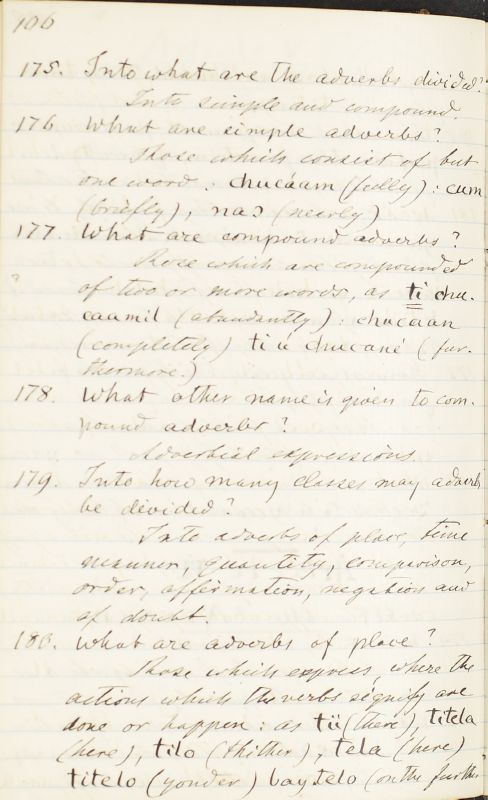 106
175. Into what are the adverbs divided?
Into simple and compound.
176. What are simple adverbs?
Those which consist of but
one word: chucáam (fully): cum
(briefly), naɔ (nearly)
177. What are compound adverbs?
Those which are compounded
? of two or more words, as ti chu-
caamil (abundantly): chucáan
(completely) ti ú chucané (fur-
thermore.)
178. What other name is given to com-
pound adverbs?
Adverbial expressions.
179. Into how many classes may adverbs
be divided?
Into adverbs of place, time
manner, quantity, comparison,
order, affirmation, negation and
of doubt.
180. What are adverbs of place?
Those which express where the
actions which the verbs signify are
done or happen: as tii (there), titela
(here), tilo (thither), tela (here)
titelo (yonder) bay telo (on the further